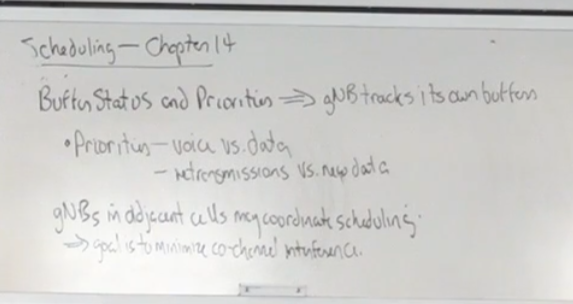 Scheduling — Chapter 14
Buffer Status and Priorities ⇒ gNB tracks its own buffers
• Priorities — voice vs. data
— retransmissions vs. new data
gNBs in adjacent cells may coordinate scheduling.
⇒ goal is to minimize co-channel interference.